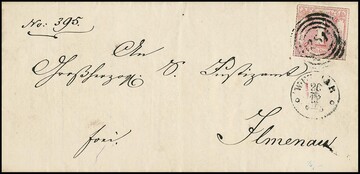 No: 395.
An
Großherzog. S. Justizamt
frei.
Ilmenau